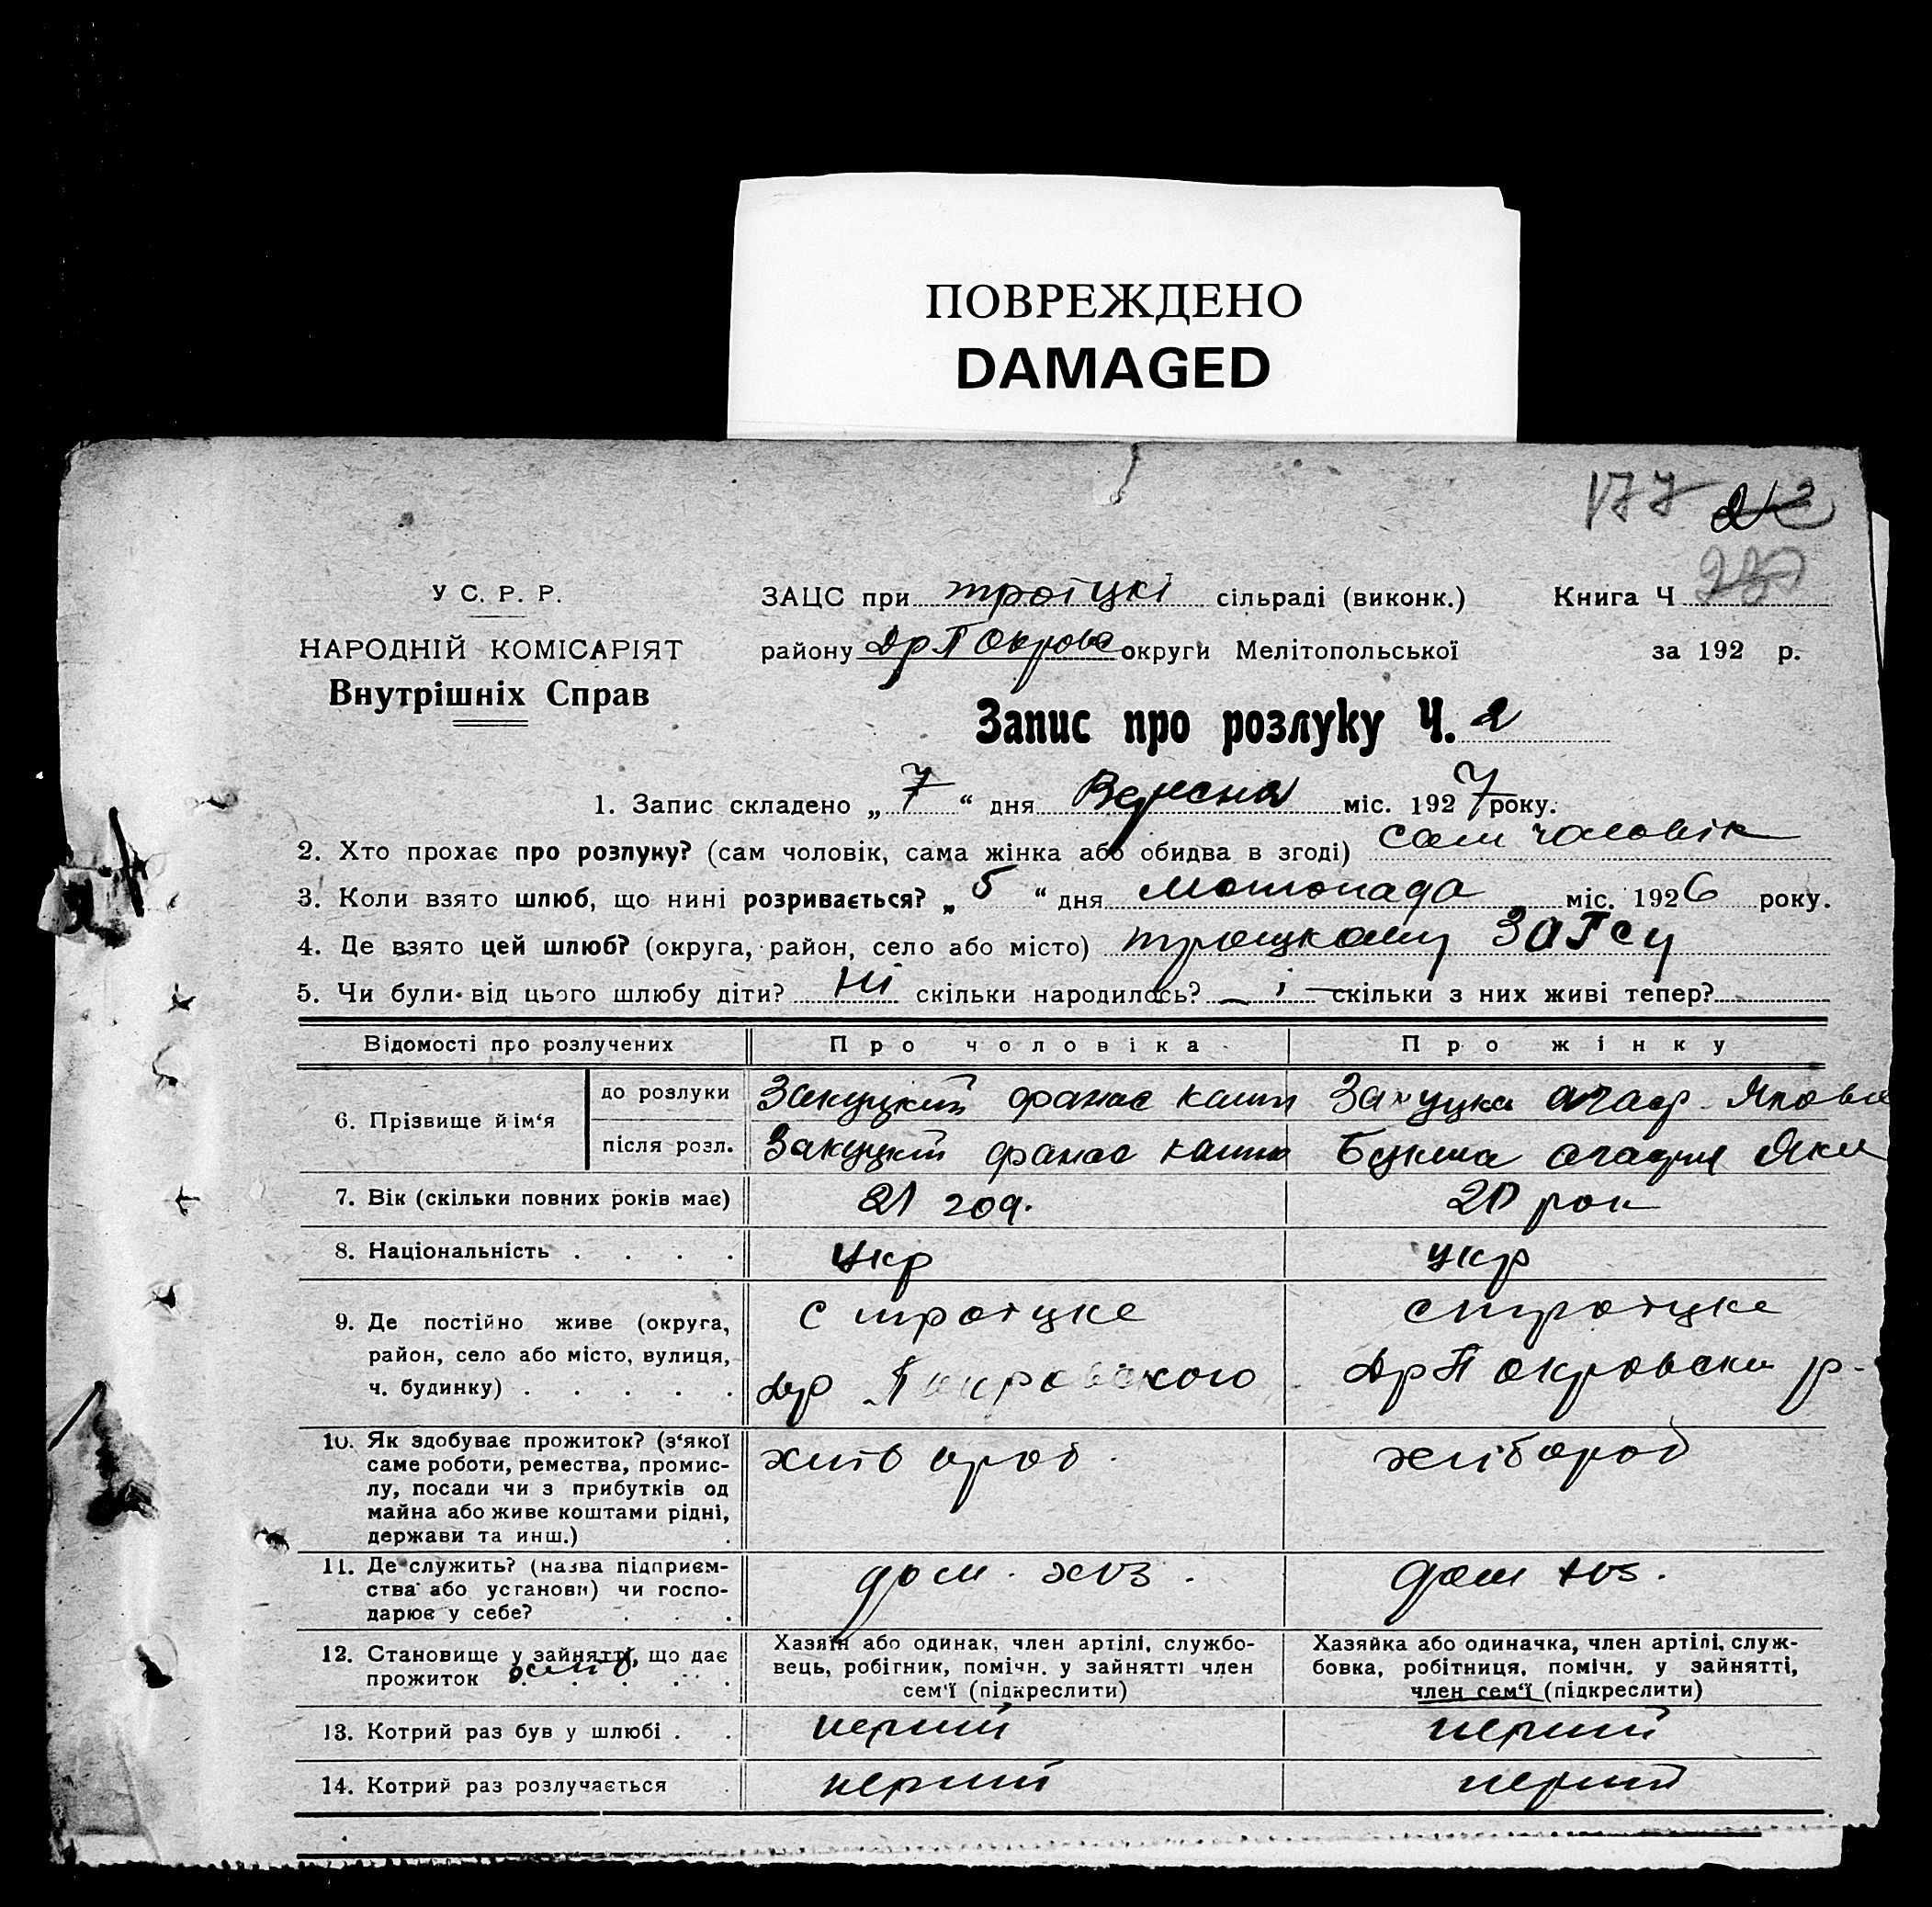 ПОВРЕЖДЕНО
DAMAGED
177 22
237
У С. Р. Р.
НАРОДНІЙ КОМІСАРІЯТ
Внутрішніх Справ
ЗАЦС при троїцкі сільраді (виконк.) Книга Ч
району Др Покров округи Мелітопольської за 192 р.
Запис про розлуку Ч. 2
1. Запис складено „ 7 “ дня Вересня міс. 1927 року.
2. Хто прохає про розлуку? (сам чоловік, сама жінка або обидва в згоді) сам чоловік
3. Коли взято шлюб, що нині розривається? „ 5 “ дня міс. 1926 року.
4. Де взято цей шлюб? (округа, район, село або місто) троцкому ЗАГСу
5. Чи були від цього шлюбу діти? Ні скільки народилось? — скільки з них живі тепер?
Відомості про розлучених Про чоловіка Про жінку
6. Прізвище й ім‘я до розлуки Закуцкий фанас Закуцка агаф
після розл. Закуцкий фанас Букша агафия
7. Вік (скільки повних років має) 21 год. 20 рок
8. Національність . . . . укр укр
9. Де постійно живе (округа, с троїцке с троїцке
район, село або місто, вулиця,
ч. будинку) . . . . . др Покровского Др Покровски р-
10. Як здобуває прожиток? (з‘якої хліб ороб хлібороб
саме роботи, ремества, промис-
лу, посади чи з прибутків од
майна або живе коштами рідні,
держави та инш.)
11. Де служить? (назва підприєм- дом. хоз. дом хоз.
ства або установи) чи госпо-
дарює у себе? . . .
12. Становище у зайнятті, що дає Хазяїн або одинак, член артілі, службо- Хазяйка або одиначка, член артілі, служ-
прожиток . . . . вець, робітник, помічн. у зайнятті член бовка, робітниця, помічн. у зайнятті,
сем‘ї (підкреслити) член сем‘ї (підкреслити)
13. Котрий раз був у шлюбі . . перший перший
14. Котрий раз розлучається . перший перший